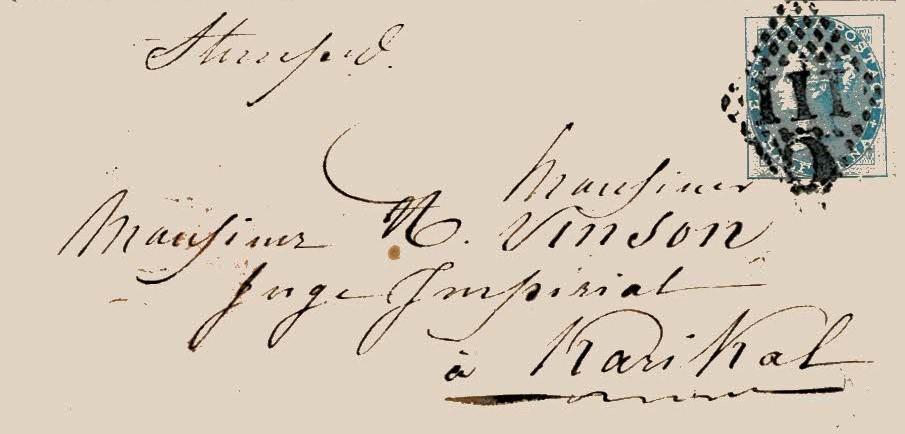 Stamped.
Monsieur
Monsieur N. Vinson
Juge Impérial
à Karikal
EAST POSTAGE
111
C